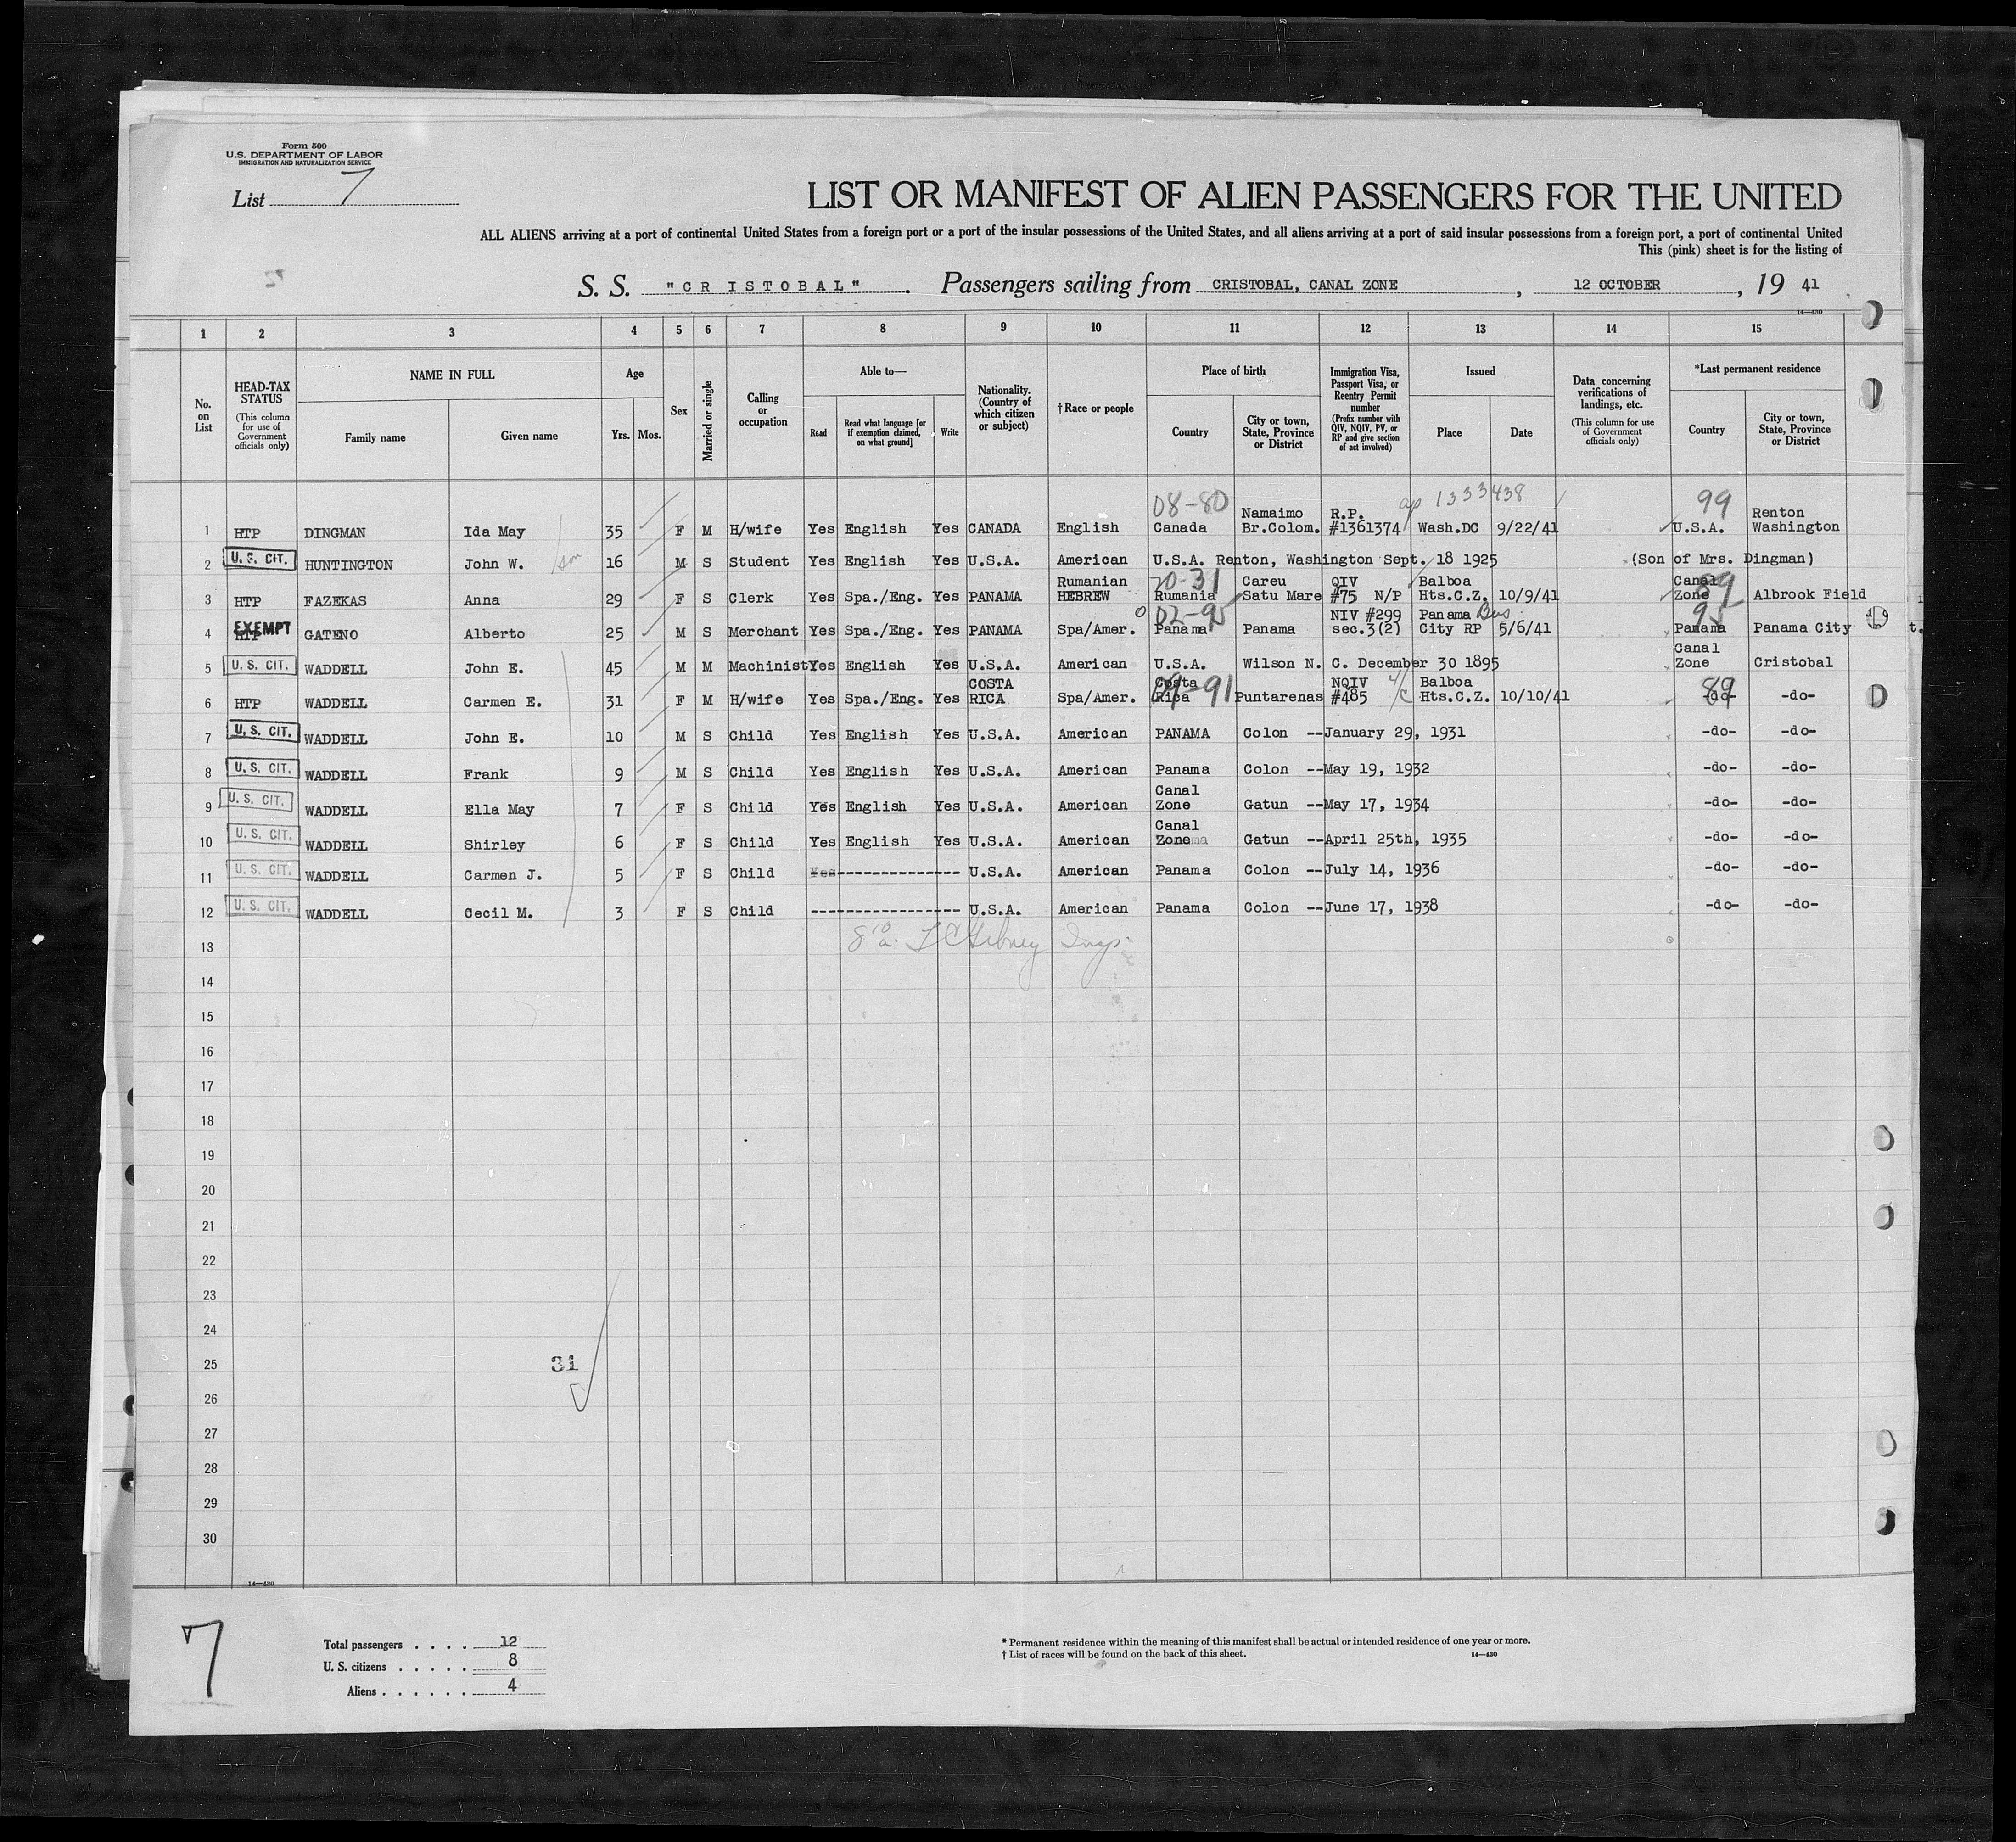 Form 500
U.S. DEPARTMENT OF LABOR
IMMIGRATION AND NATURALIZATION SERVICE
List 7
LIST OR MANIFEST OF ALIEN PASSENGERS FOR THE UNITED
ALL ALIENS arriving at a port of continental United States from a foreign port or a port of the insular possessions of the United States, and all aliens arriving at a port of said insular possessions from a foreign port, a port of continental United
This (pink) sheet is for the listing of
S. S. "CRISTOBAL". Passengers sailing from CRISTOBAL, CANAL ZONE, 12 OCTOBER, 19 41
14—430
1 2 3 4 5 6 7 8 9 10 11 12 13 14 15
No. on List
HEAD-TAX STATUS (This column for use of Government officials only)
NAME IN FULL
Family name Given name
Age
Yrs. Mos.
Sex
Married or single
Calling or occupation
Able to—
Read Read what language [or if exemption claimed, on what ground] Write
Nationality. (Country of which citizen or subject)
†Race or people
Place of birth
Country City or town, State, Province or District
Immigration Visa, Passport Visa, or Reentry Permit number (Prefix number with QIV, NQIV, PV, or RP and give section of act involved)
Issued
Place Date
Data concerning verifications of landings, etc. (This column for use of Government officials only)
*Last permanent residence
Country City or town, State, Province or District
08-80 1333438 99
Namaimo R.P. Renton
1 HTP DINGMAN Ida May 35 F M H/wife Yes English Yes CANADA English Canada Br.Colom. #1361374 Wash.DC 9/22/41 U.S.A. Washington
2 U.S. CIT. HUNTINGTON John W. son 16 M S Student Yes English Yes U.S.A. American U.S.A. Renton, Washington Sept. 18 1925 (Son of Mrs. Dingman)
Rumanian 70-31 Careu QIV Balboa Canal 89
3 HTP FAZEKAS Anna 29 F S Clerk Yes Spa./Eng. Yes PANAMA HEBREW Rumania Satu Mare #75 N/P Hts.C.Z. 10/9/41 Zone Albrook Field
EXEMPT 02-95 NIV #299 Panama Bus 95
4 HTP GATENO Alberto 25 M S Merchant Yes Spa./Eng. Yes PANAMA Spa/Amer. Panama Panama sec.3(2) City RP 5/6/41 Panama Panama City t.
Canal
5 U.S. CIT. WADDELL John E. 45 M M Machinist Yes English Yes U.S.A. American U.S.A. Wilson N. C. December 30 1895 Zone Cristobal
COSTA Costa 09-91 NQIV Balboa 89
6 HTP WADDELL Carmen E. 31 F M H/wife Yes Spa./Eng. Yes RICA Spa/Amer. Rica Puntarenas #485 Hts.C.Z. 10/10/41 -do- -do-
7 U.S. CIT. WADDELL John E. 10 M S Child Yes English Yes U.S.A. American PANAMA Colon --January 29, 1931 -do- -do-
8 U.S. CIT. WADDELL Frank 9 M S Child Yes English Yes U.S.A. American Panama Colon --May 19, 1932 -do- -do-
Canal
9 U.S. CIT. WADDELL Ella May 7 F S Child Yes English Yes U.S.A. American Zone Gatun --May 17, 1934 -do- -do-
Canal
10 U.S. CIT. WADDELL Shirley 6 F S Child Yes English Yes U.S.A. American Zone Gatun --April 25th, 1935 -do- -do-
11 U.S. CIT. WADDELL Carmen J. 5 F S Child Yes-------------- U.S.A. American Panama Colon --July 14, 1936 -do- -do-
12 U.S. CIT. WADDELL Cecil M. 3 F S Child ----------------- U.S.A. American Panama Colon --June 17, 1938 -do- -do-
13
14
15
16
17
18
19
20
21
22
23
24
25 31
26
27
28
29
30
14—430
7
Total passengers . . . . 12
U. S. citizens . . . . . 8
Aliens . . . . . . 4
* Permanent residence within the meaning of this manifest shall be actual or intended residence of one year or more.
† List of races will be found on the back of this sheet. 14—430